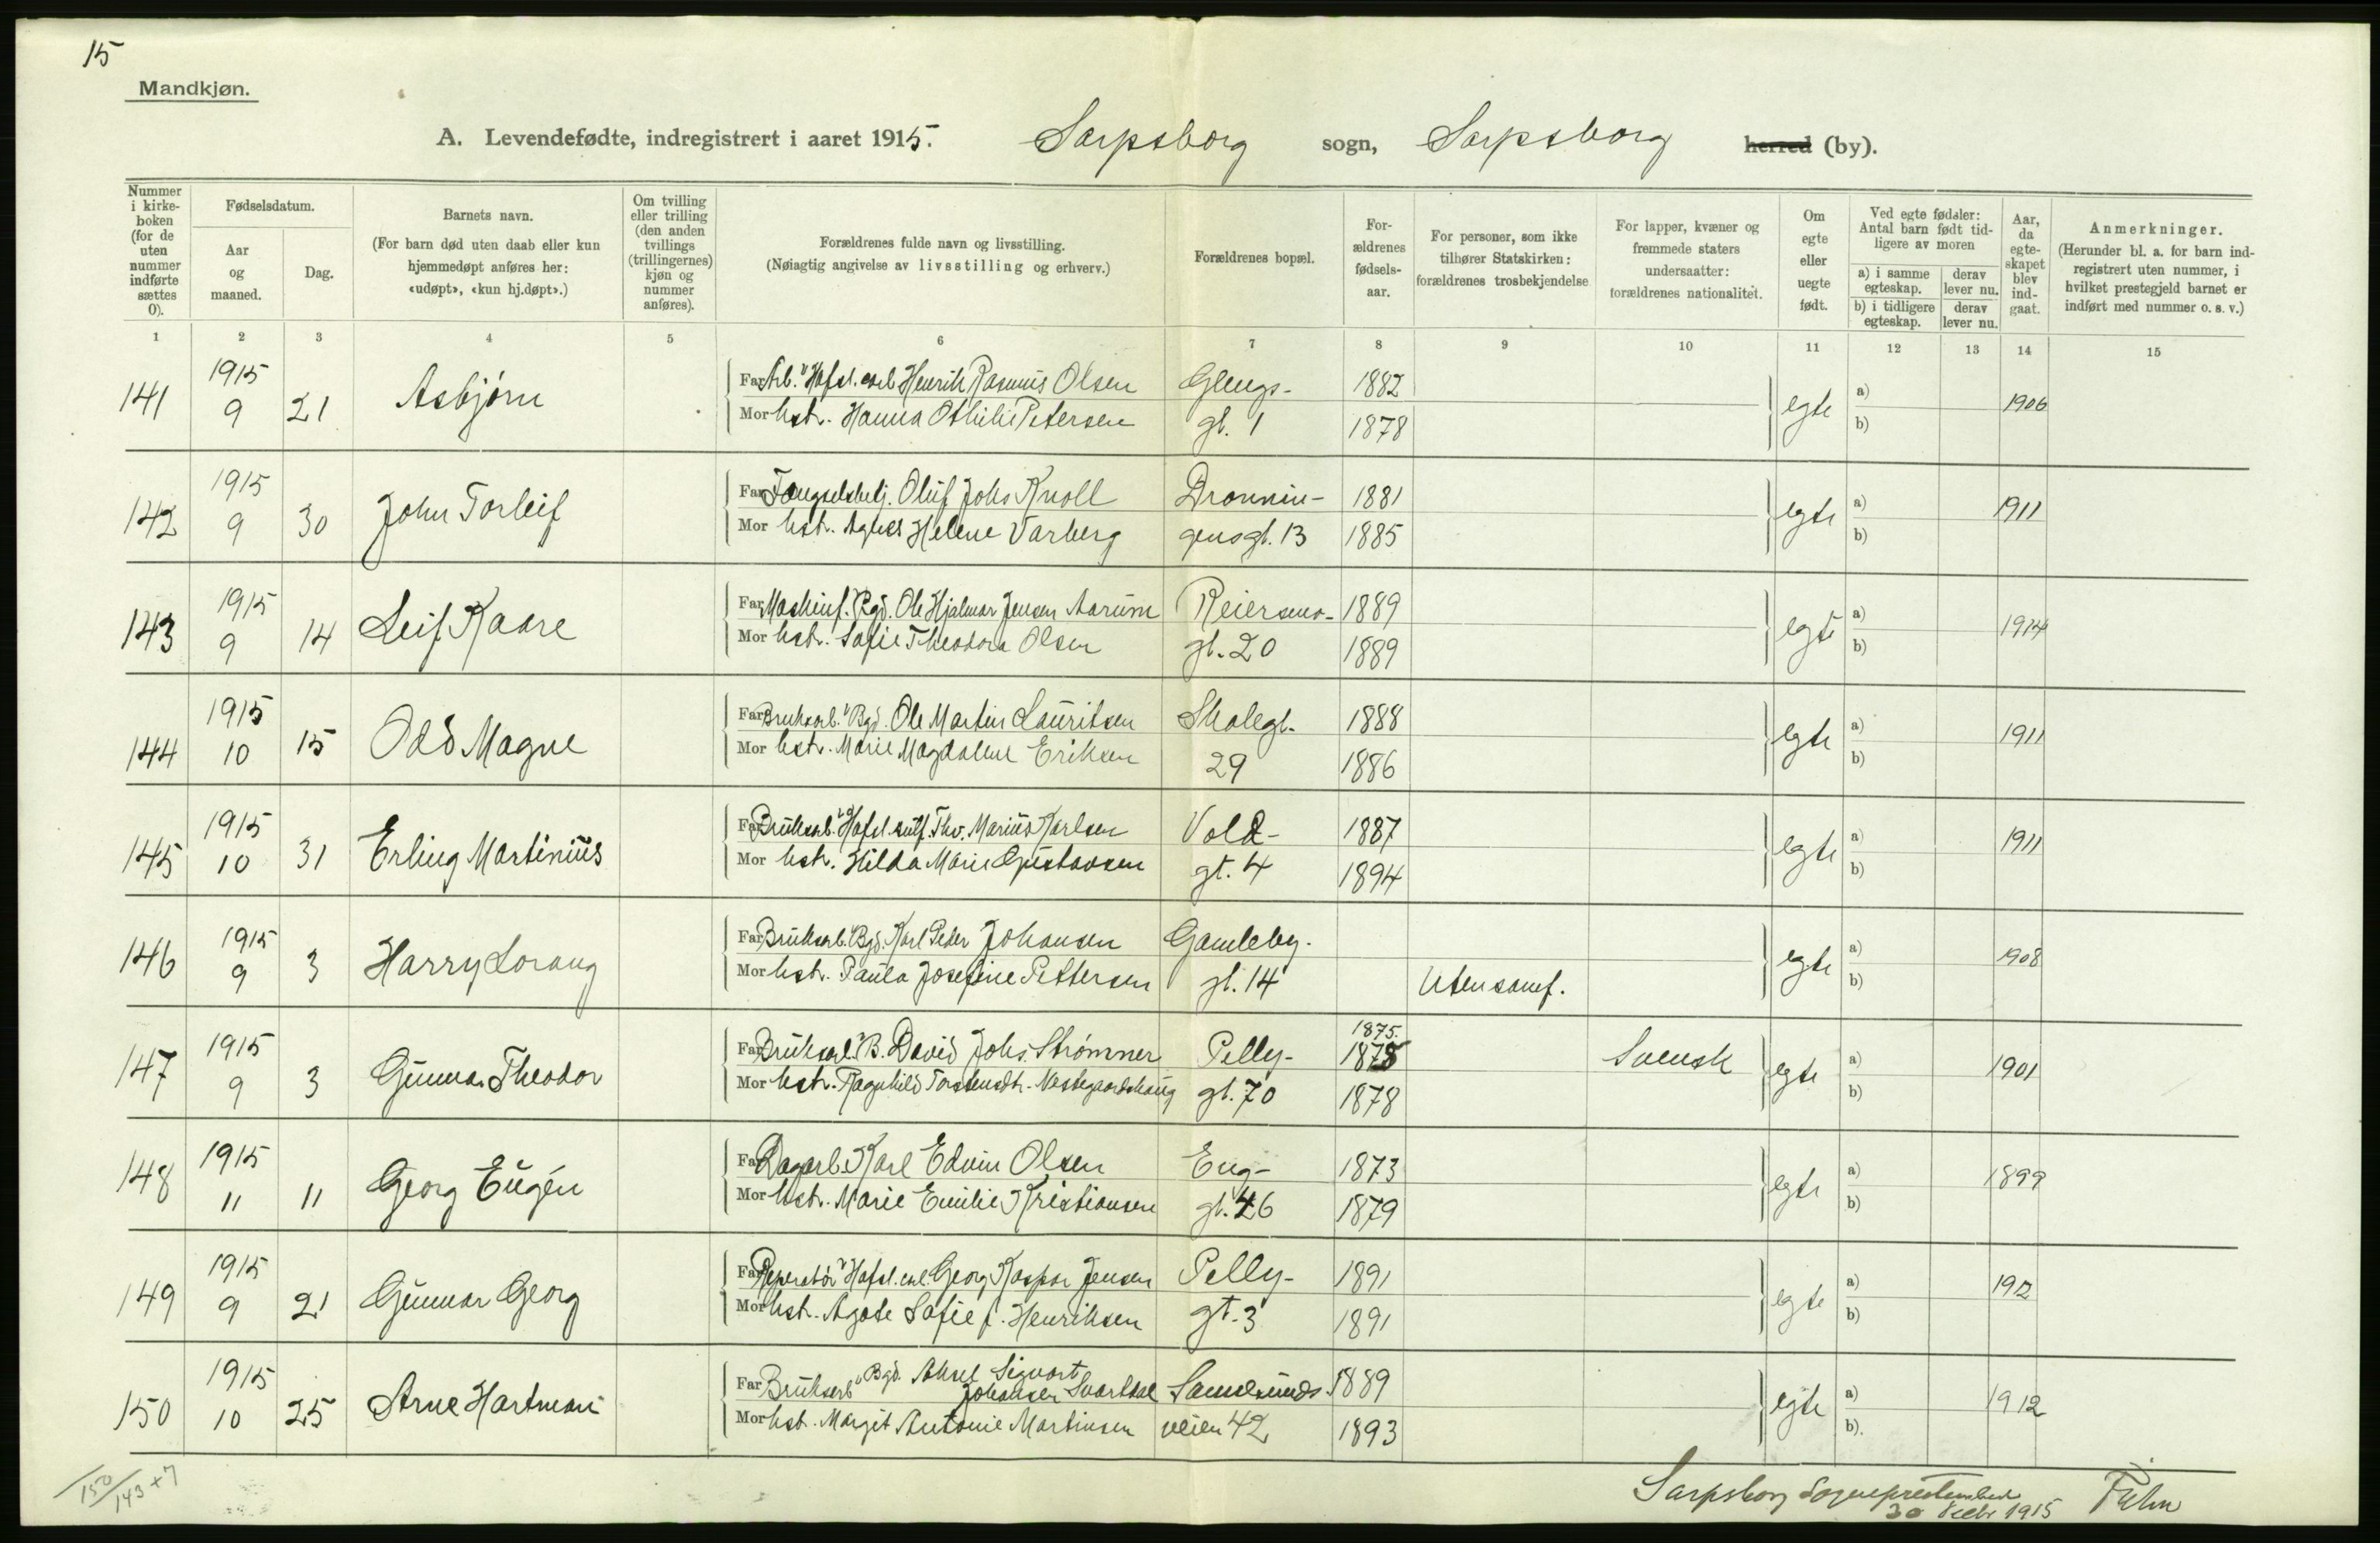 15
Mandkjøn.
A. Levendefødte, indregistrert i aaret 1915. Sarpsborg sogn, Sarpsborg herred (by).
Nummer i kirke-boken (for de uten nummer indførte sættes 0).
Fødselsdatum.
Aar og maaned.
Dag.
Barnets navn.
(For barn død uten daab eller kun hjemmedøpt anføres her: «udøpt», «kun hj.døpt».)
Om tvilling eller trilling (den anden tvillings (trillingernes) kjøn og nummer anføres).
Forældrenes fulde navn og livsstilling.
(Nøiagtig angivelse av livsstilling og erhverv.)
Forældrenes bopæl.
For-ældrenes fødsels-aar.
For personer, som ikke tilhører Statskirken: forældrenes trosbekjendelse
For lapper, kvæner og fremmede staters undersaatter: forældrenes nationalitet.
Om egte eller uegte født.
Ved egte fødsler: Antal barn født tid-ligere av moren
a) i samme egteskap.
derav lever nu.
b) i tidligere egteskap.
derav lever nu.
Aar, da egte-skapet blev ind-gaat.
Anmerkninger.
(Herunder bl. a. for barn ind-registrert uten nummer, i hvilket prestegjeld barnet er indført med nummer o. s. v.)
1 2 3 4 5 6 7 8 9 10 11 12 13 14 15
141 1915 9 21 Asbjørn
Far Arb. "Hafsl. Henrik Rasmus Olsen Glengs- 1882
Mor hstr. Hanna Othilie Petersen gt. 1 1878
egte a) b) 1906
142 1915 9 30 John Torleif
Far Fængselsbetj. Oluf Johs Knoll Dronnin- 1881
Mor hstr. Agnes Helene Varberg gensgt. 13 1885
egte a) b) 1911
143 1915 9 14 Leif Kaare
Far Maskinf. Bgd. Ole Hjalmar Jensen Aarum Reiersens- 1889
Mor hstr. Sofie Theodora Olsen gt. 20 1889
egte a) b) 1914
144 1915 10 15 Odd Magne
Far Bruksarb. "Bgd. Ole Martin Lauritsen Skolegt. 1888
Mor hstr. Marie Magdalene Eriksen 29 1886
egte a) b) 1911
145 1915 10 31 Erling Martinius
Far Bruksarb. "Hafsl. sulf. Thv. Marius Karlsen Vold- 1887
Mor hstr. Hilda Marie Gustavsen gt. 4 1894
egte a) b) 1911
146 1915 9 3 Harry Lorang
Far Bruksarb. Bgd. Karl Peder Johansen Gamleby-
Mor hstr. Paula Josefine Pettersen gt. 14 Uten samf.
egte a) b) 1908
147 1915 9 3 Gunnar Theodor
1875.
Far Bruksarb. "B. David Johs. Strømner Pelly- 1875 Svensk
Mor hstr. Ragnhild Torstensdtr. gt. 70 1878
egte a) b) 1901
148 1915 11 11 Georg Eugén
Far Dagarb. Karl Edvin Olsen Eng- 1873
Mor hstr. Marie Emilie Kristiansen gt. 46 1879
egte a) b) 1899
149 1915 9 21 Gunnar Georg
Far Reperatør "Hafsl. Georg Kaspar Jensen Pelly- 1891
Mor hstr. Agate Sofie f. Henriksen gt. 3 1891
egte a) b) 1912
150 1915 10 25 Arne Hartman
Far Bruksarb "Bgd. Aksel Sigvart
Johansen Svartdal Sandesunds 1889
Mor hstr. Margit Antonie Martinsen veien 42 1893
egte a) b). 1912
150/143+7
Sarpsborg Sogneprestembede
30 Decbr 1915